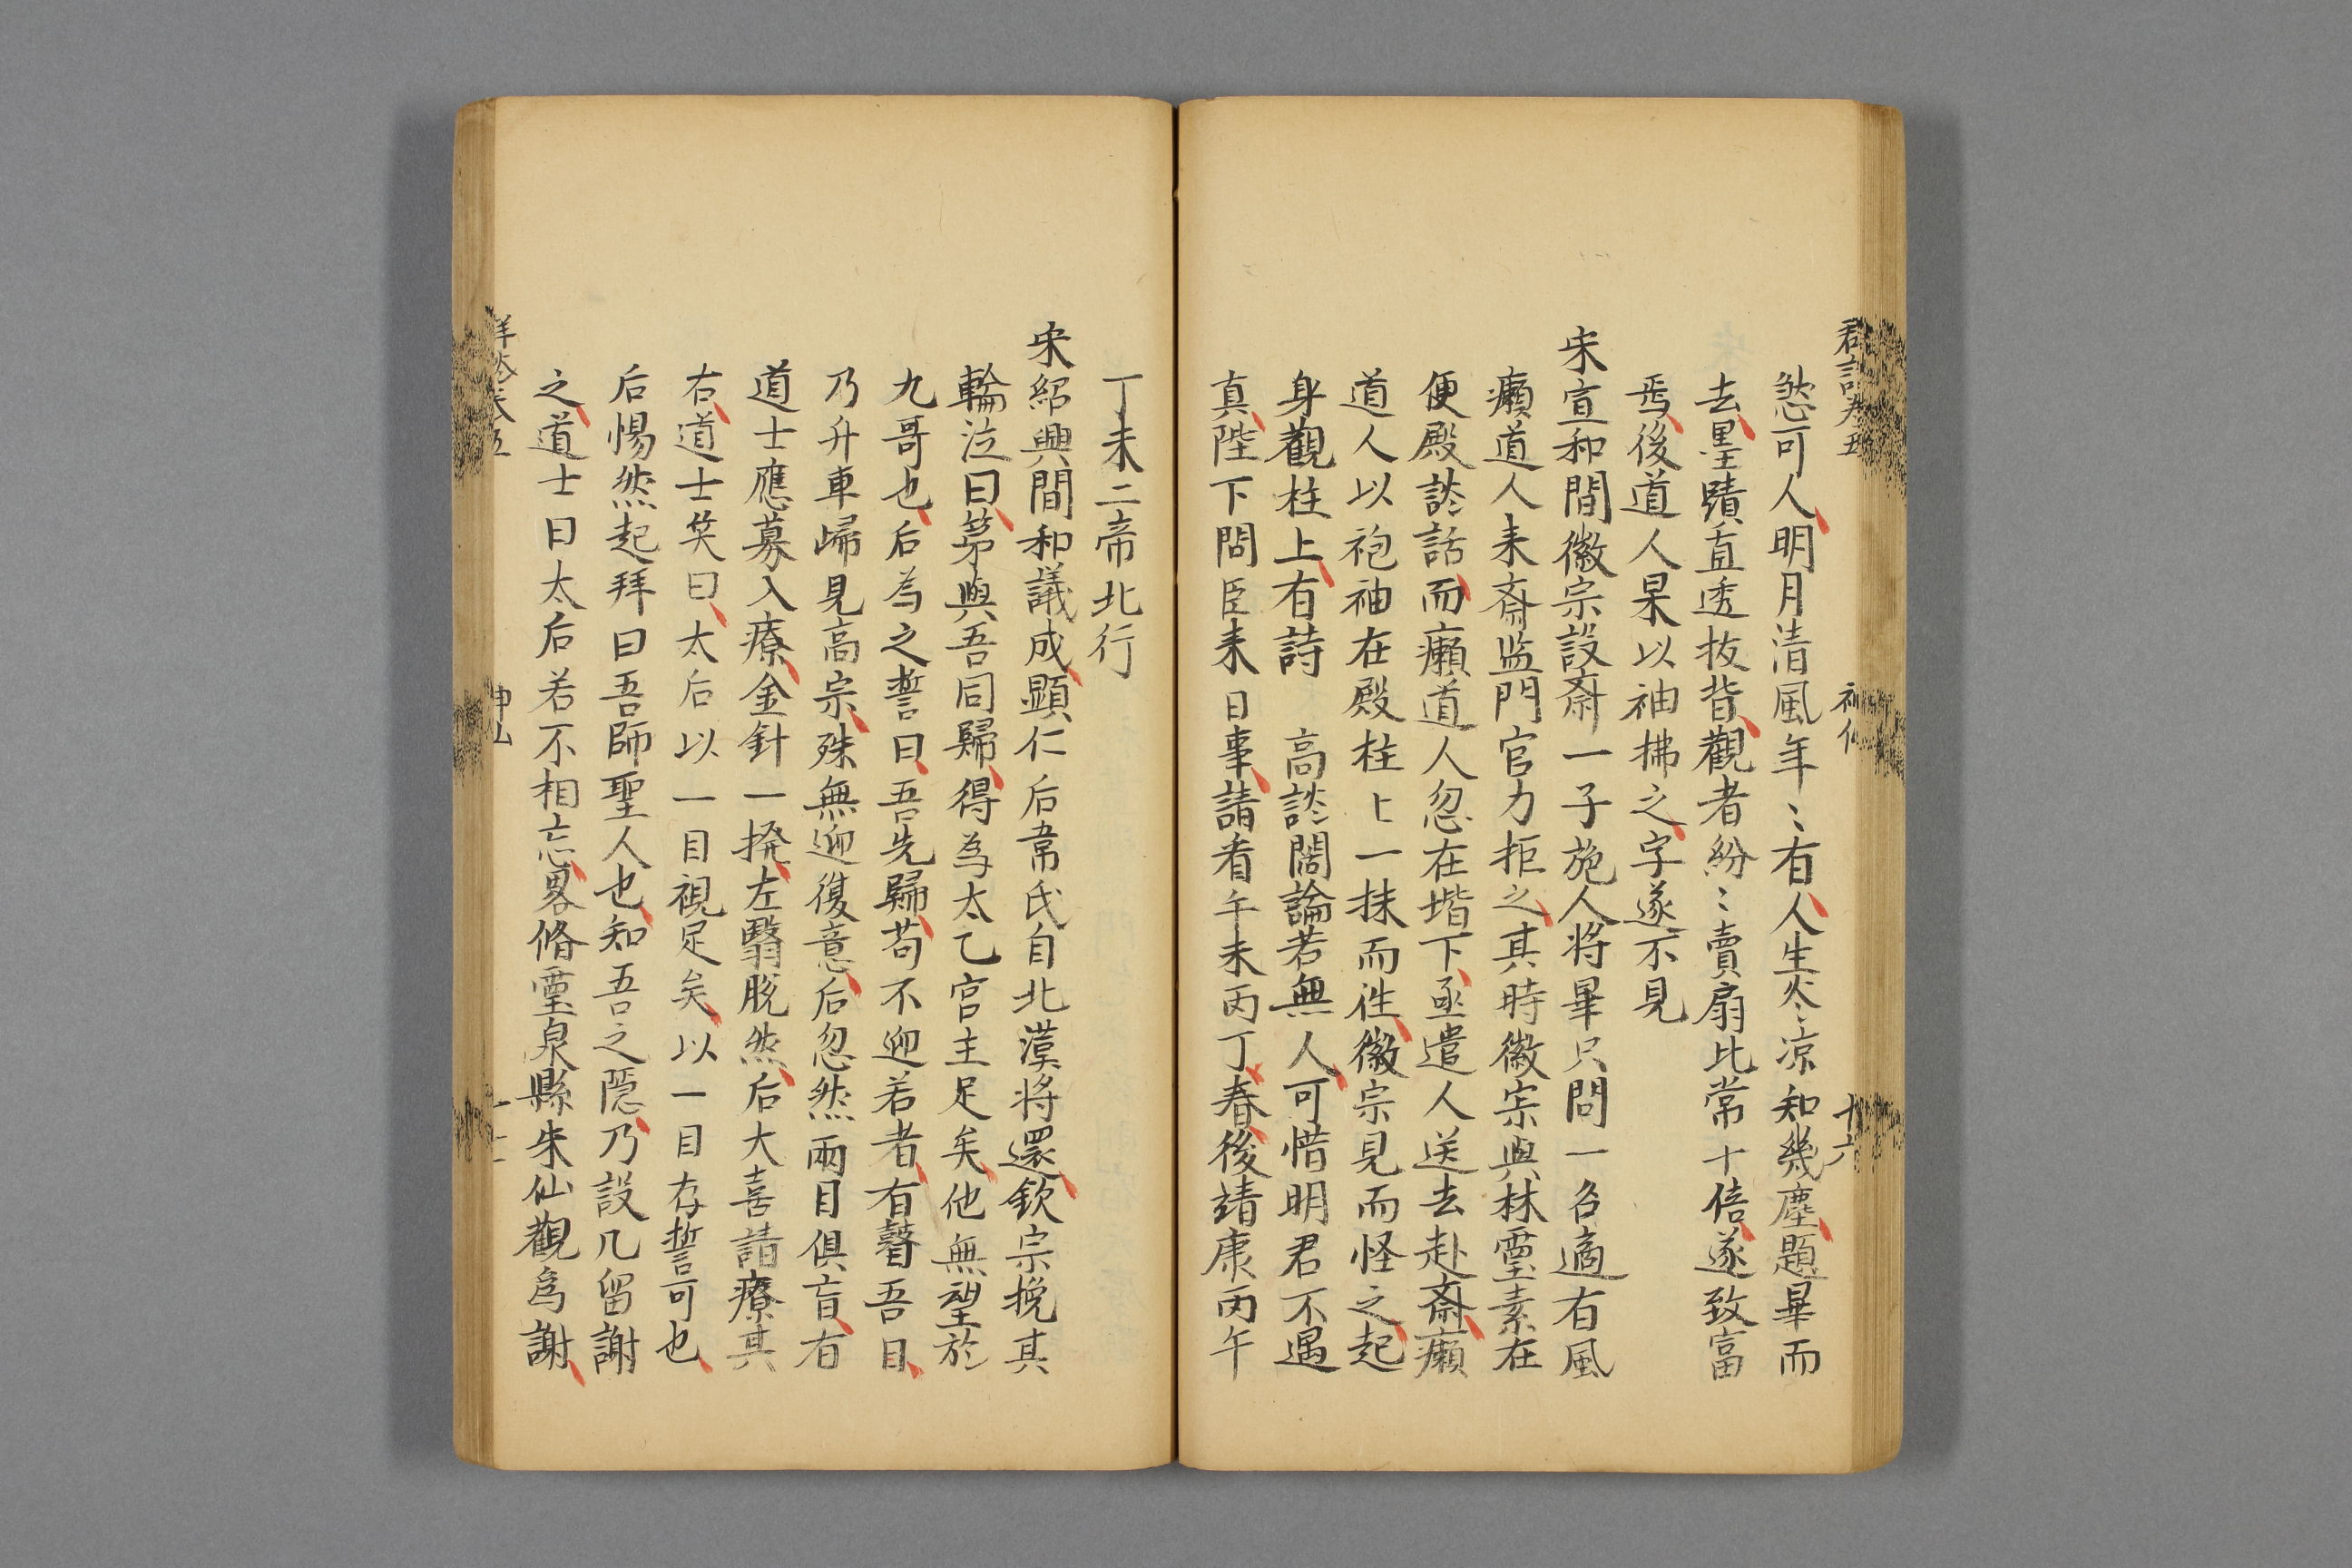 群談卷五 神仙 十六
愁可人明月清風年〻有人生炎凉知幾塵題畢而
去墨蹟直透扳背觀者紛〻賣扇比常十倍遂致富
焉後道人杲以袖拂之字遂不見
宋宣和間徽宗設齋一子施人将畢只問一名適有風
癩道人来斋监門官力拒之其時徽宗與林靈素在
便殿談話而癩道人忽在堦下亟遣人送去赴斋癩
道人以袍袖在殿柱上一抹而徃徽宗見而怪之起
身觀柱上有詩 高談闊論若無人可惜明君不遇
真陛下問臣来日事請看午未丙丁春後靖康丙午
丁未二帝北行
宋紹興間和議成顕仁后韋氏自北漠将還欽宗挽其
輪泣曰苐與吾同歸得為太乙宫主足矣他無望於
九哥也后為之誓曰吾先歸苟不迎若者有瞽吾目
乃升車歸見高宗殊無迎復意后忽然兩目俱盲有
道士應募入療金針一撥左翳脱然后大喜請療其
右道士笑曰太后以一目視足矣以一目存誓可也
后惕然起拜曰吾師聖人也知吾之隠乃設几留謝
之道士曰太后若不相忘畧脩靈泉縣朱仙觀為謝